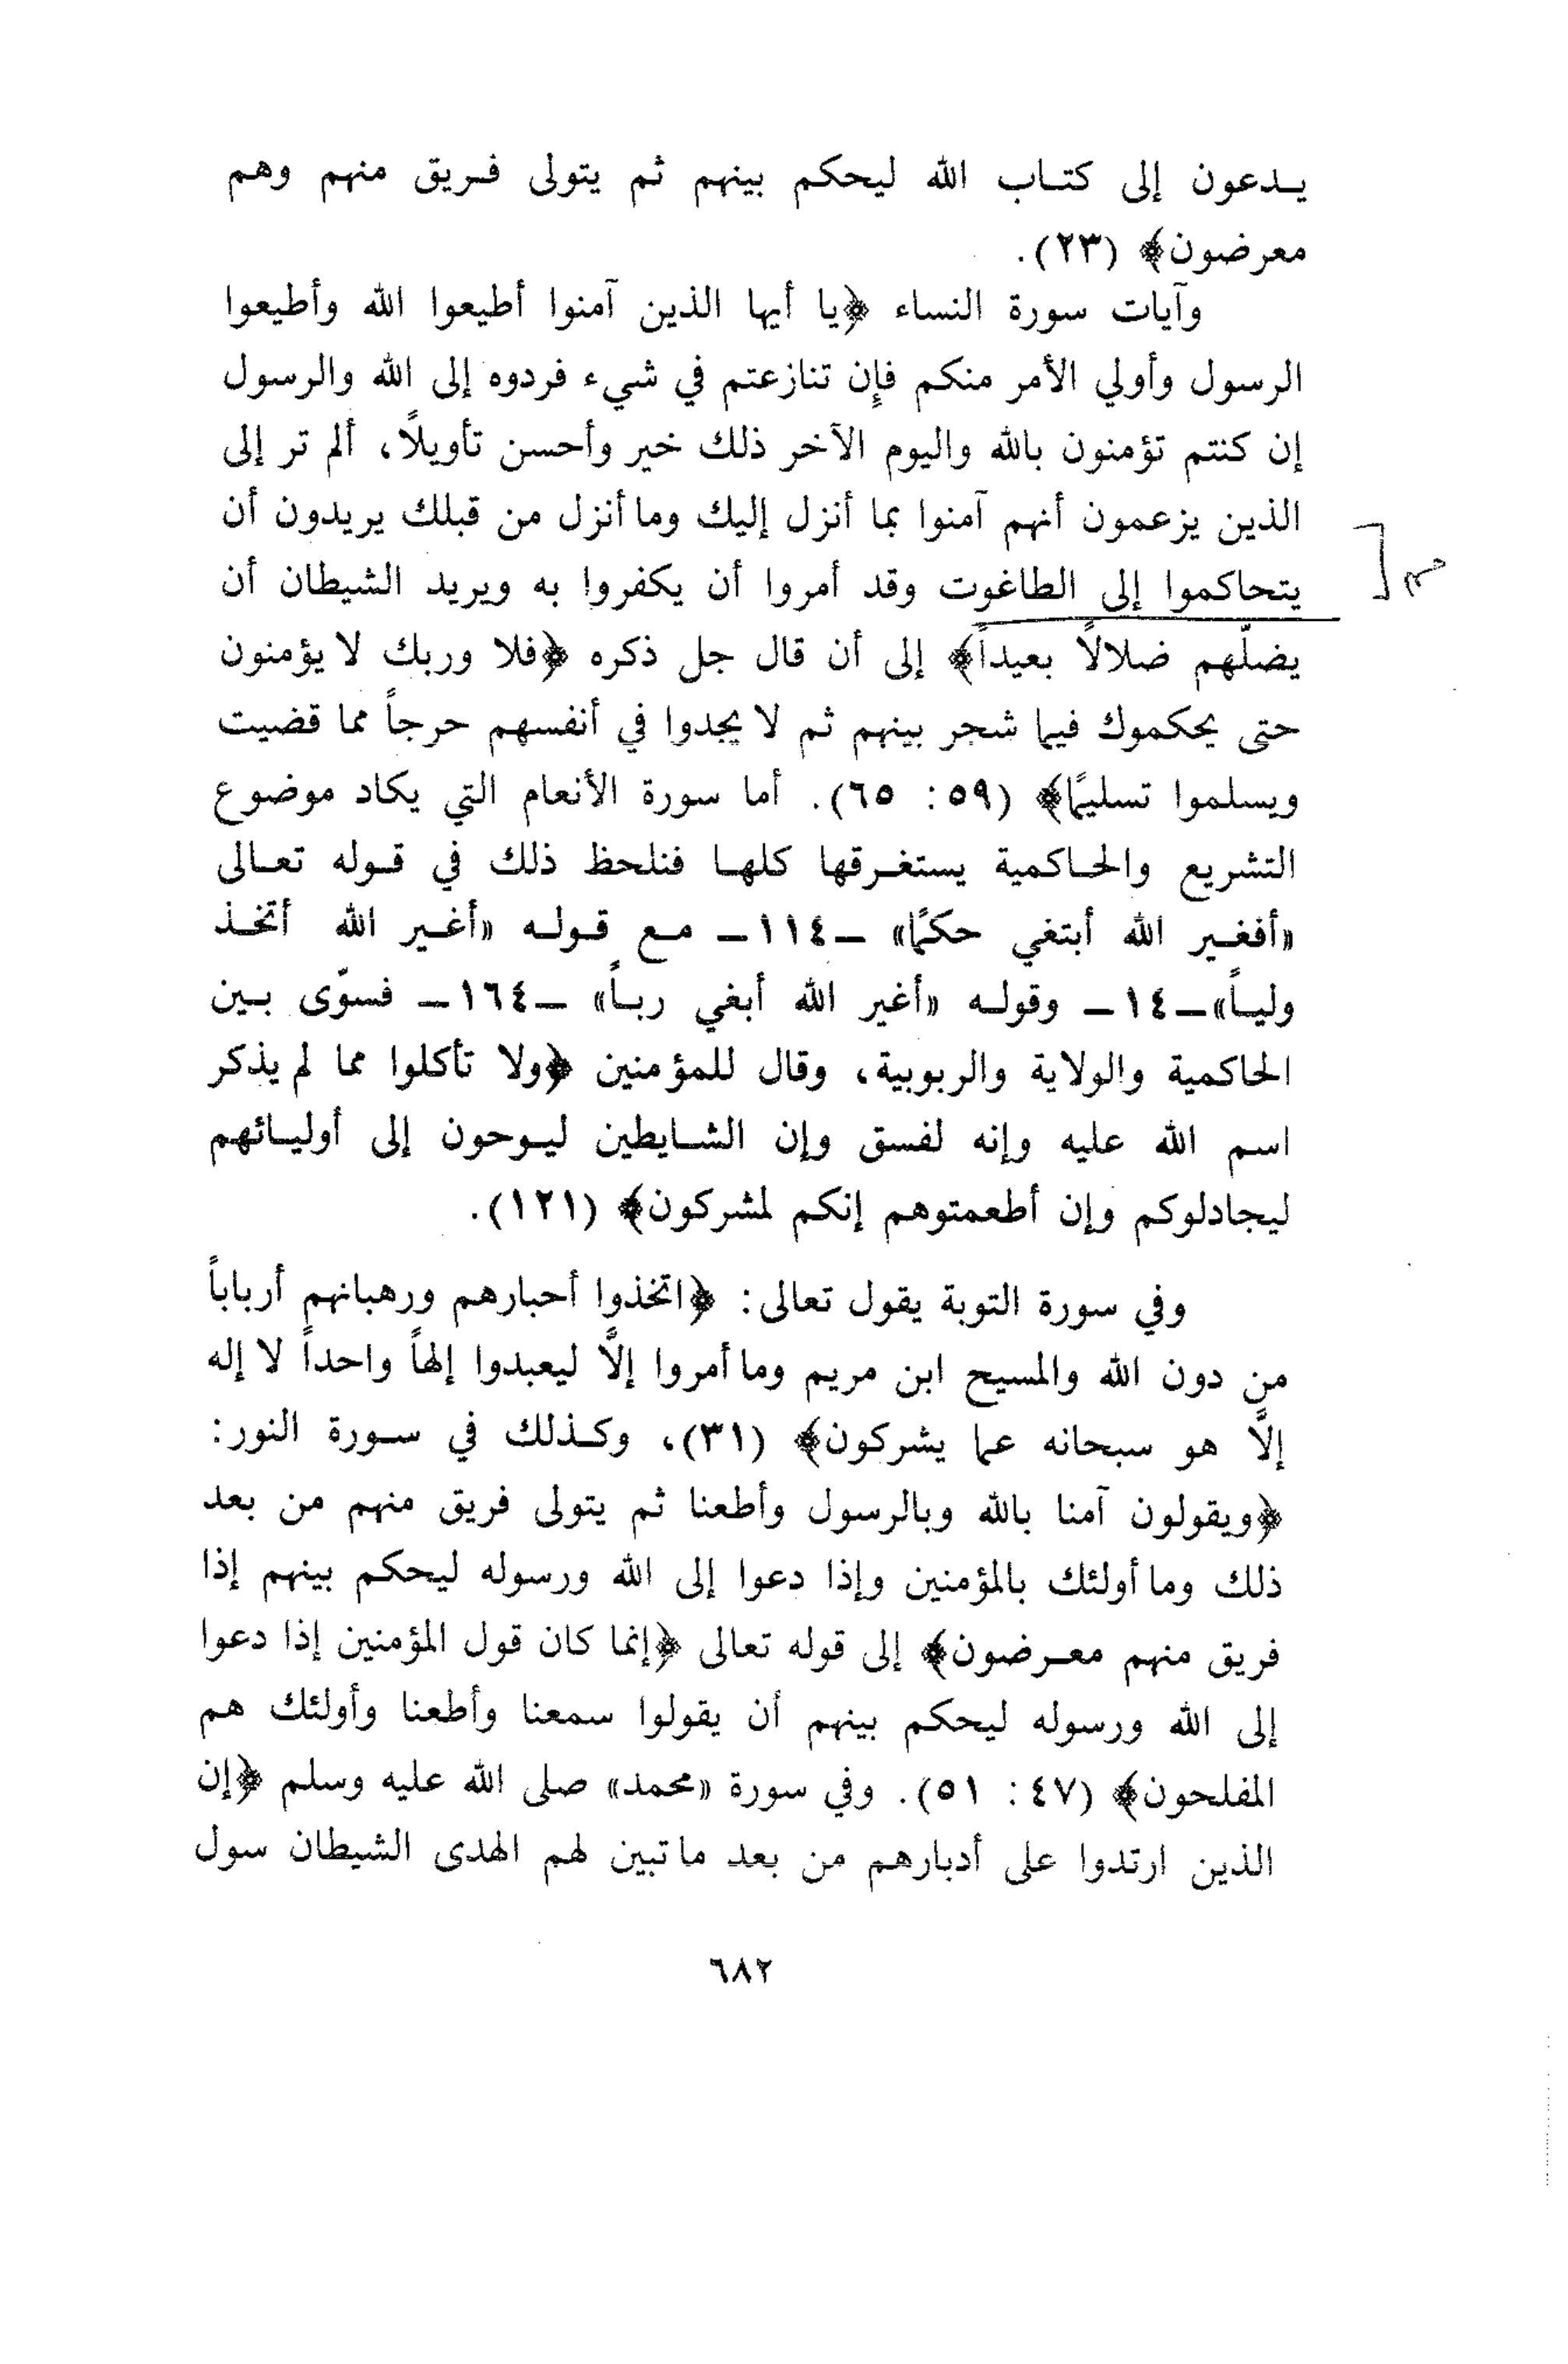 يـدعون إلى كتـاب الله ليحكم بينهم ثم يتولى فـريق منهم وهم
معرضون﴾ (٢٣).
وآيات سورة النساء ﴿يا أيها الذين آمنوا أطيعوا الله وأطيعوا
الرسول وأولي الأمر منكم فإن تنازعتم في شيء فردوه إلى الله والرسول
إن كنتم تؤمنون بالله واليوم الآخر ذلك خير وأحسن تأويلاً، ألم تر إلى
الذين يزعمون أنهم آمنوا بما أنزل إليك وما أنزل من قبلك يريدون أن
يتحاكموا إلى الطاغوت وقد أمروا أن يكفروا به ويريد الشيطان أن
يضلّهم ضلالاً بعيداً﴾ إلى أن قال جل ذكره ﴿فلا وربك لا يؤمنون
حتى يحكموك فيما شجر بينهم ثم لا يجدوا في أنفسهم حرجاً مما قضيت
ويسلموا تسليمًا﴾ (٥٩ : ٦٥). أما سورة الأنعام التي يكاد موضوع
التشريع والحـاكمية يستغـرقها كلهـا فنلحظ ذلك في قـوله تعـالى
«أفغـير الله أبتغي حكمًا» ــ١١٤ــ مـع قـولـه «أغـير الله أتخـذ
وليـاً»ــ١٤ــ وقولـه «أغير الله أبغي ربـاً» ــ١٦٤ــ فسوّى بـين
الحاكمية والولاية والربوبية، وقال للمؤمنين ﴿ولا تأكلوا مما لم يذكر
اسم الله عليه وإنه لفسق وإن الشـايطين ليـوحون إلى أوليـائهم
ليجادلوكم وإن أطعمتوهم إنكم لمشركون﴾ (١٢١).
وفي سورة التوبة يقول تعالى: ﴿اتخذوا أحبارهم ورهبانهم أرباباً
من دون الله والمسيح ابن مريم وما أمروا إلاَّ ليعبدوا إلهاً واحداً لا إله
إلاَّ هو سبحانه عما يشركون﴾ (٣١)، وكـذلك في سـورة النور:
﴿ويقولون آمنا بالله وبالرسول وأطعنا ثم يتولى فريق منهم من بعد
ذلك وما أولئك بالمؤمنين وإذا دعوا إلى الله ورسوله ليحكم بينهم إذا
فريق منهم معـرضون﴾ إلى قوله تعالى ﴿إنما كان قول المؤمنين إذا دعوا
إلى الله ورسوله ليحكم بينهم أن يقولوا سمعنا وأطعنا وأولئك هم
المفلحون﴾ (٤٧ : ٥١). وفي سورة «محمد» صلى الله عليه وسلم ﴿إن
الذين ارتدوا على أدبارهم من بعد ما تبين لهم الهدى الشيطان سول
٦٨٢